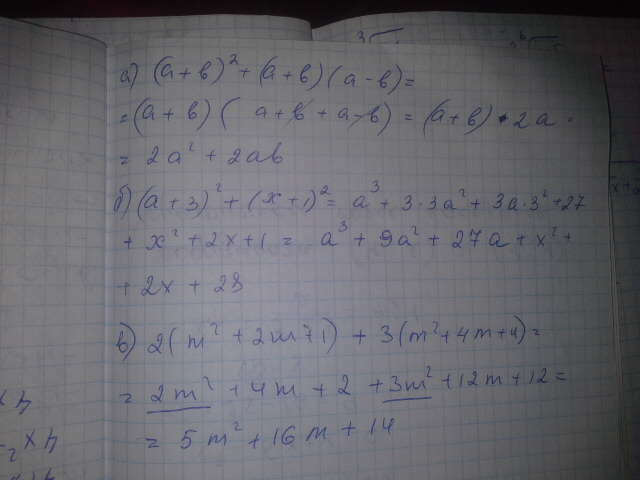 а) (a+b)² + (a+b)(a-b) =
= (a+b)( a+b + a-b) = (a+b) • 2a =
= 2a² + 2ab
б) (a+3)² + (x+1)² = a³ + 3·3a² + 3a·3² + 27
+ x² + 2x + 1 = a³ + 9a² + 27a + x² +
+ 2x + 28
в) 2(m² + 2m+1) + 3(m²+4m+4) =
= 2m² + 4m + 2 + 3m² + 12m + 12 =
= 5m² + 16m + 14